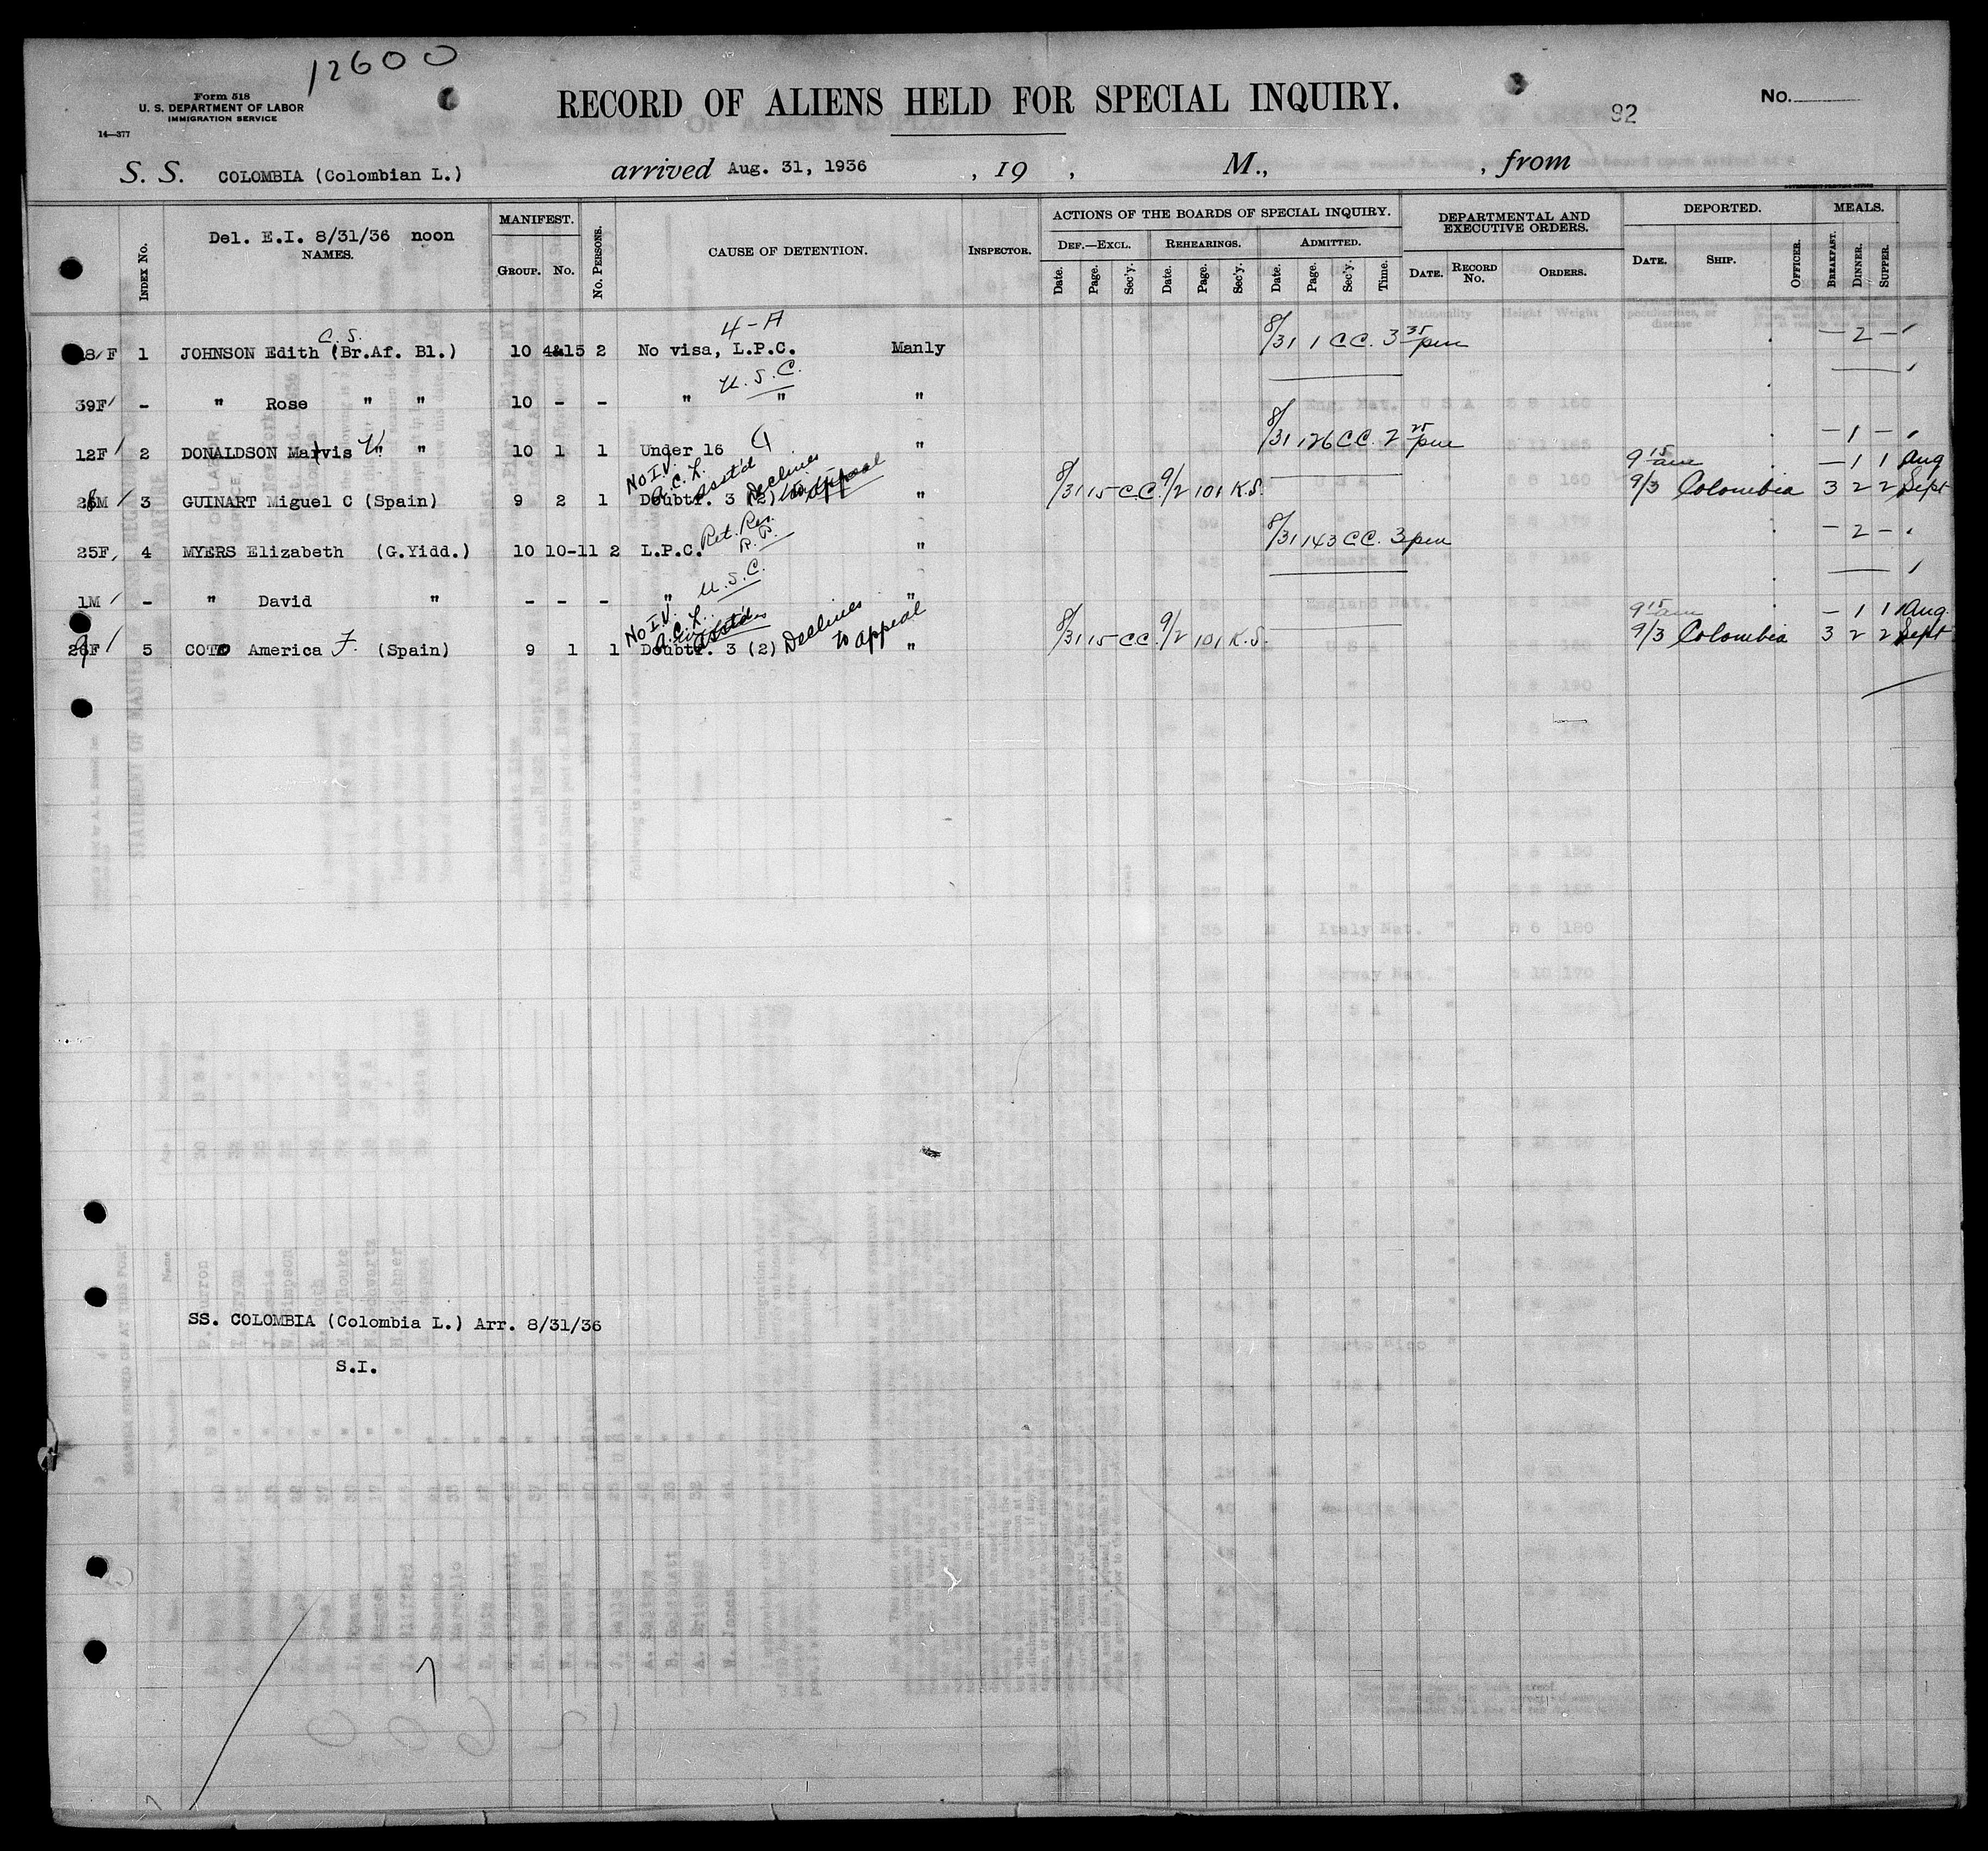 12600
Form 518
U. S. DEPARTMENT OF LABOR
IMMIGRATION SERVICE
14—377
RECORD OF ALIENS HELD FOR SPECIAL INQUIRY.
92
No.
S. S. COLOMBIA (Colombian L.) arrived Aug. 31, 1936 , 19 , M., , from
INDEX No. Del. E.I. 8/31/36 noon NAMES. MANIFEST. GROUP. No. No. PERSONS. CAUSE OF DETENTION. INSPECTOR. ACTIONS OF THE BOARDS OF SPECIAL INQUIRY. DEPARTMENTAL AND EXECUTIVE ORDERS. DEPORTED. MEALS.
DEF.—EXCL. REHEARINGS. ADMITTED.
Date. Page. Sec'y. Date. Page. Sec'y. Date. Page. Sec'y. Time. DATE. RECORD No. ORDERS. DATE. SHIP. OFFICER. BREAKFAST. DINNER. SUPPER.
C. S. 4-A
8/F 1 JOHNSON Edith (Br.Af. Bl.) 10 4&15 2 No visa, L.P.C. Manly 8/31 1 CC. 3 35 pm — 2 —
U.S.C.
39F - " Rose " " 10 - - " " "
12F 2 DONALDSON Marvis V. " " 10 1 1 Under 16 " 8/31 126 CC. 2 25 pm — 1 —
No I.V. A.C.L. asst'd Declines to appeal 9 15 am — 1 1 Aug
M 3 GUINART Miguel C (Spain) 9 2 1 Doubtr. 3 (2) " 8/31 15 C.C. 9/2 101 K.S. 9/3 Colombia 3 2 2 Sept
Ret. Res. R.P.
25F 4 MYERS Elizabeth (G.Yidd.) 10 10-11 2 L.P.C. " 8/31 143 CC. 3 pm — 2 —
U.S.C.
1M - " David " - - - " "
No I.V. A.C.L. asst'd Declines to appeal 9 15 am — 1 1 Aug.
F 5 COTO America F. (Spain) 9 1 1 Doubtr. 3 (2) " 8/31 15 C.C. 9/2 101 K.S. 9/3 Colombia 3 2 2 Sept
SS. COLOMBIA (Colombia L.) Arr. 8/31/36
S.I.